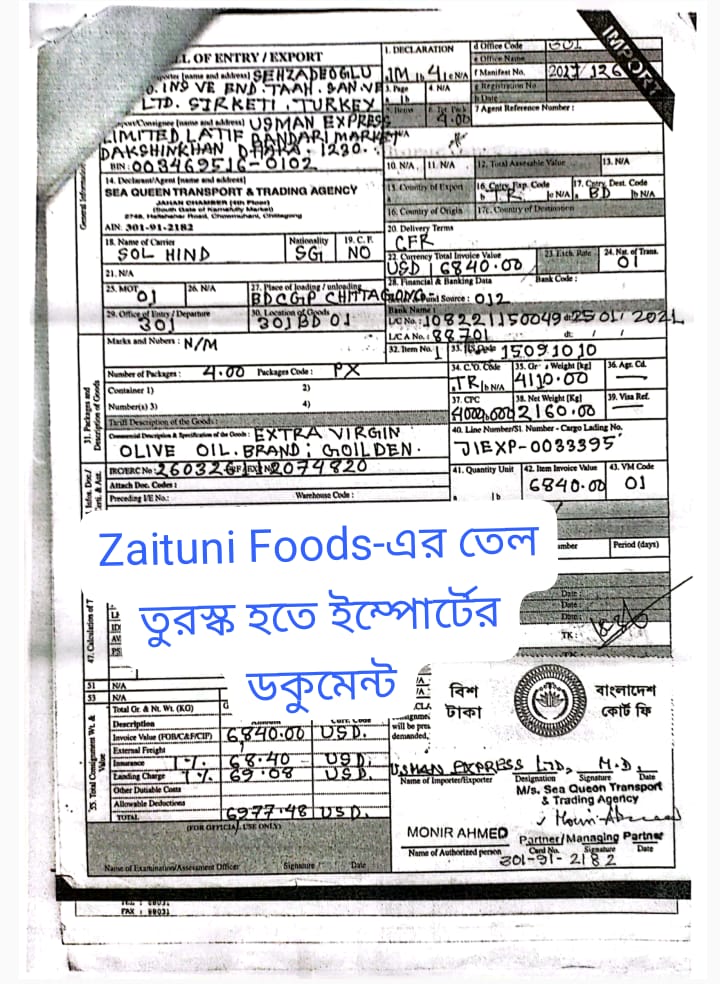 IMPORT
L OF ENTRY / EXPORT
1. DECLARATION
d Office Code 301
e Office Name
Exporter [name and address] SEHZADEOGLU
IM 4 c N/A
f Manifest No. 2021/126
g Registration No
h Date
D. INS VE END. TAAH. SAN. VE
LTD. SIRKETI, TURKEY
3. Page
4. N/A
7 Agent Reference Number :
4.00
Import/Consignee [name and address] USMAN EXPRESS
LIMITED LATIF BANDARI MARKET
DAKSHINKHAN DHAKA-1230.
BIN: 003469516-0102
10. N/A
11. N/A
12. Total Assesable Value
13. N/A
14. Declarant/Agent [name and address]
SEA QUEEN TRANSPORT & TRADING AGENCY
JAHAN CHAMBER (4th Floor)
AIN: 301-91-2182
15. Country of Export
16. Cntry. Exp. Code
TR N/A
17. Cntry. Dest. Code
a BD b N/A
16. Country of Origin
17c. Country of Destination
18. Name of Carrier
SOL HIND
Nationality
SGI
19. C. F.
NO
20. Delivery Terms
CFR
21. N/A
22. Currency Total Invoice Value
USD 6840.00
23. Exch. Rate
24. Nat. of Trans.
01
25. MOT
01
26. N/A
27. Place of loading / unloading
BDCGP CHITTAGONG
28. Financial & Banking Data
Bank Code :
Fund Source : 012
29. Office of Entry / Departure
301
30. Location of Goods
301 BD 01
Bank Name :
L/C No. : 108221150049 dt: 25/01/2021
L/C A No. : 88701 dt: / /
Marks and Nubers : N/M
32. Item No. 1
15091010
Number of Packages : 4.00 Packages Code : PX
34. C.O. Code
TR b N/A
35. Gross Weight [kg]
4110.00
36. Agr. Cd.
Container 1) 2)
Number(s) 3) 4)
37. CPC
4000,000
38. Net Weight [Kg]
2160.00
39. Visa Ref.
31. Packages and Description of Goods
Tariff Description of the Goods :
Commercial Description & Specification of the Goods : EXTRA VIRGIN
OLIVE OIL. BRAND : GOILDEN.
40. Line Number/Sl. Number - Cargo Lading No.
JIEXP-0033395
IRC/ERC No : 260326 2074820
Attach Doc. Codes :
Preceding I/E No.: Warehouse Code :
41. Quantity Unit
a b
42. Item Invoice Value
6840.00
43. VM Code
01
Zaituni Foods-এর তেল
তুরস্ক হতে ইম্পোর্টের
ডকুমেন্ট
Period (days)
Date :
Date :
Date :
TK :
51 N/A
53 N/A
Total Gr. & Nt. Wt. (KG)
বিশ
টাকা
বাংলাদেশ
কোর্ট ফি
Description
Invoice Value (FOB/C&F/CIP) 6840.00 USD.
External Freight
Insurance 1% 68.40 USD.
Landing Charge 1% 69.08 USD.
Other Dutiable Costs
Allowable Deductions
TOTAL 6977.48 USD.
55. Total Consignment Wt. & Value
demanded,
USMAN EXPRESS LTD, M.D.
Name of Importer/Exporter Designation Signature Date
M/s. Sea Queen Transport
& Trading Agency
(FOR OFFICIAL USE ONLY)
MONIR AHMED
Partner/Managing Partner
Name of Authorized person Card No. Signature Date
301-91-2182
Name of Examination/Assessment Officer Signature / Date
FAX : 88031